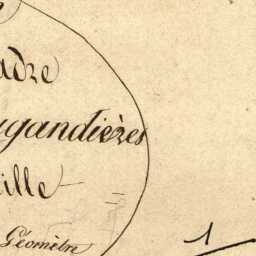 adre
gandières
ille
Géomètre
1